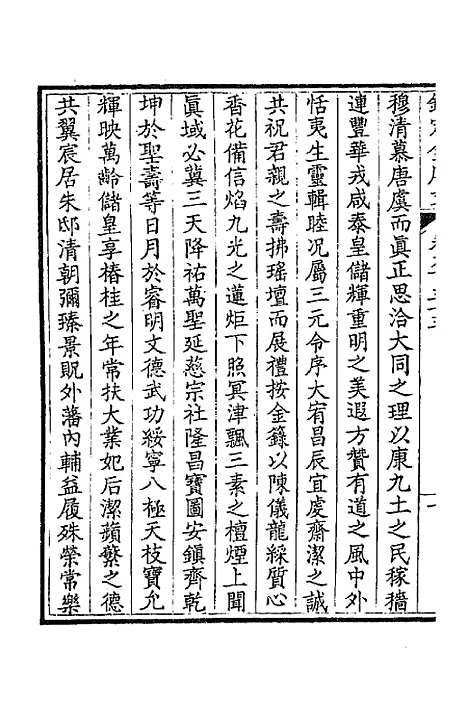 穆清慕唐虞而真正思洽大同之理以康九土之民稼穡
連豐華戎咸泰皇儲輝重明之美遐方贊有道之風中外
恬夷生靈輯睦况屬三元令序大宥昌辰宜虔齋潔之誠
共祝君親之壽拂瑤壇而展禮按金籙以陳儀龍綵質心
香花備信焰九光之蓮炬下照冥津飄三素之檀煙上聞
眞域必冀三天降祐萬聖延慈宗社隆昌寶圖安鎭齊乾
坤於聖壽等日月於睿明文德武功綏寧八極天枝寶允
輝映萬齡儲皇享椿桂之年常扶大業妃后潔蘋蘩之德
共翼宸居朱邸清朝彌臻景貺外藩內輔益履殊榮常樂